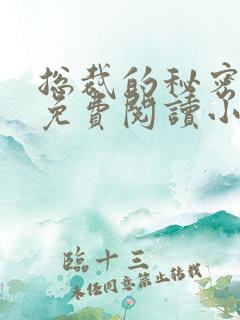 总裁的秘密
免費閱讀小
臨十三
未经同意禁止转载